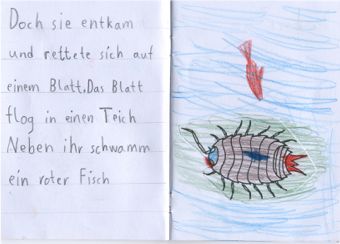 Doch sie entkam
und rettete sich auf
einem Blatt,Das Blatt
flog in einen Teich
Neben ihr schwamm
ein roter Fisch